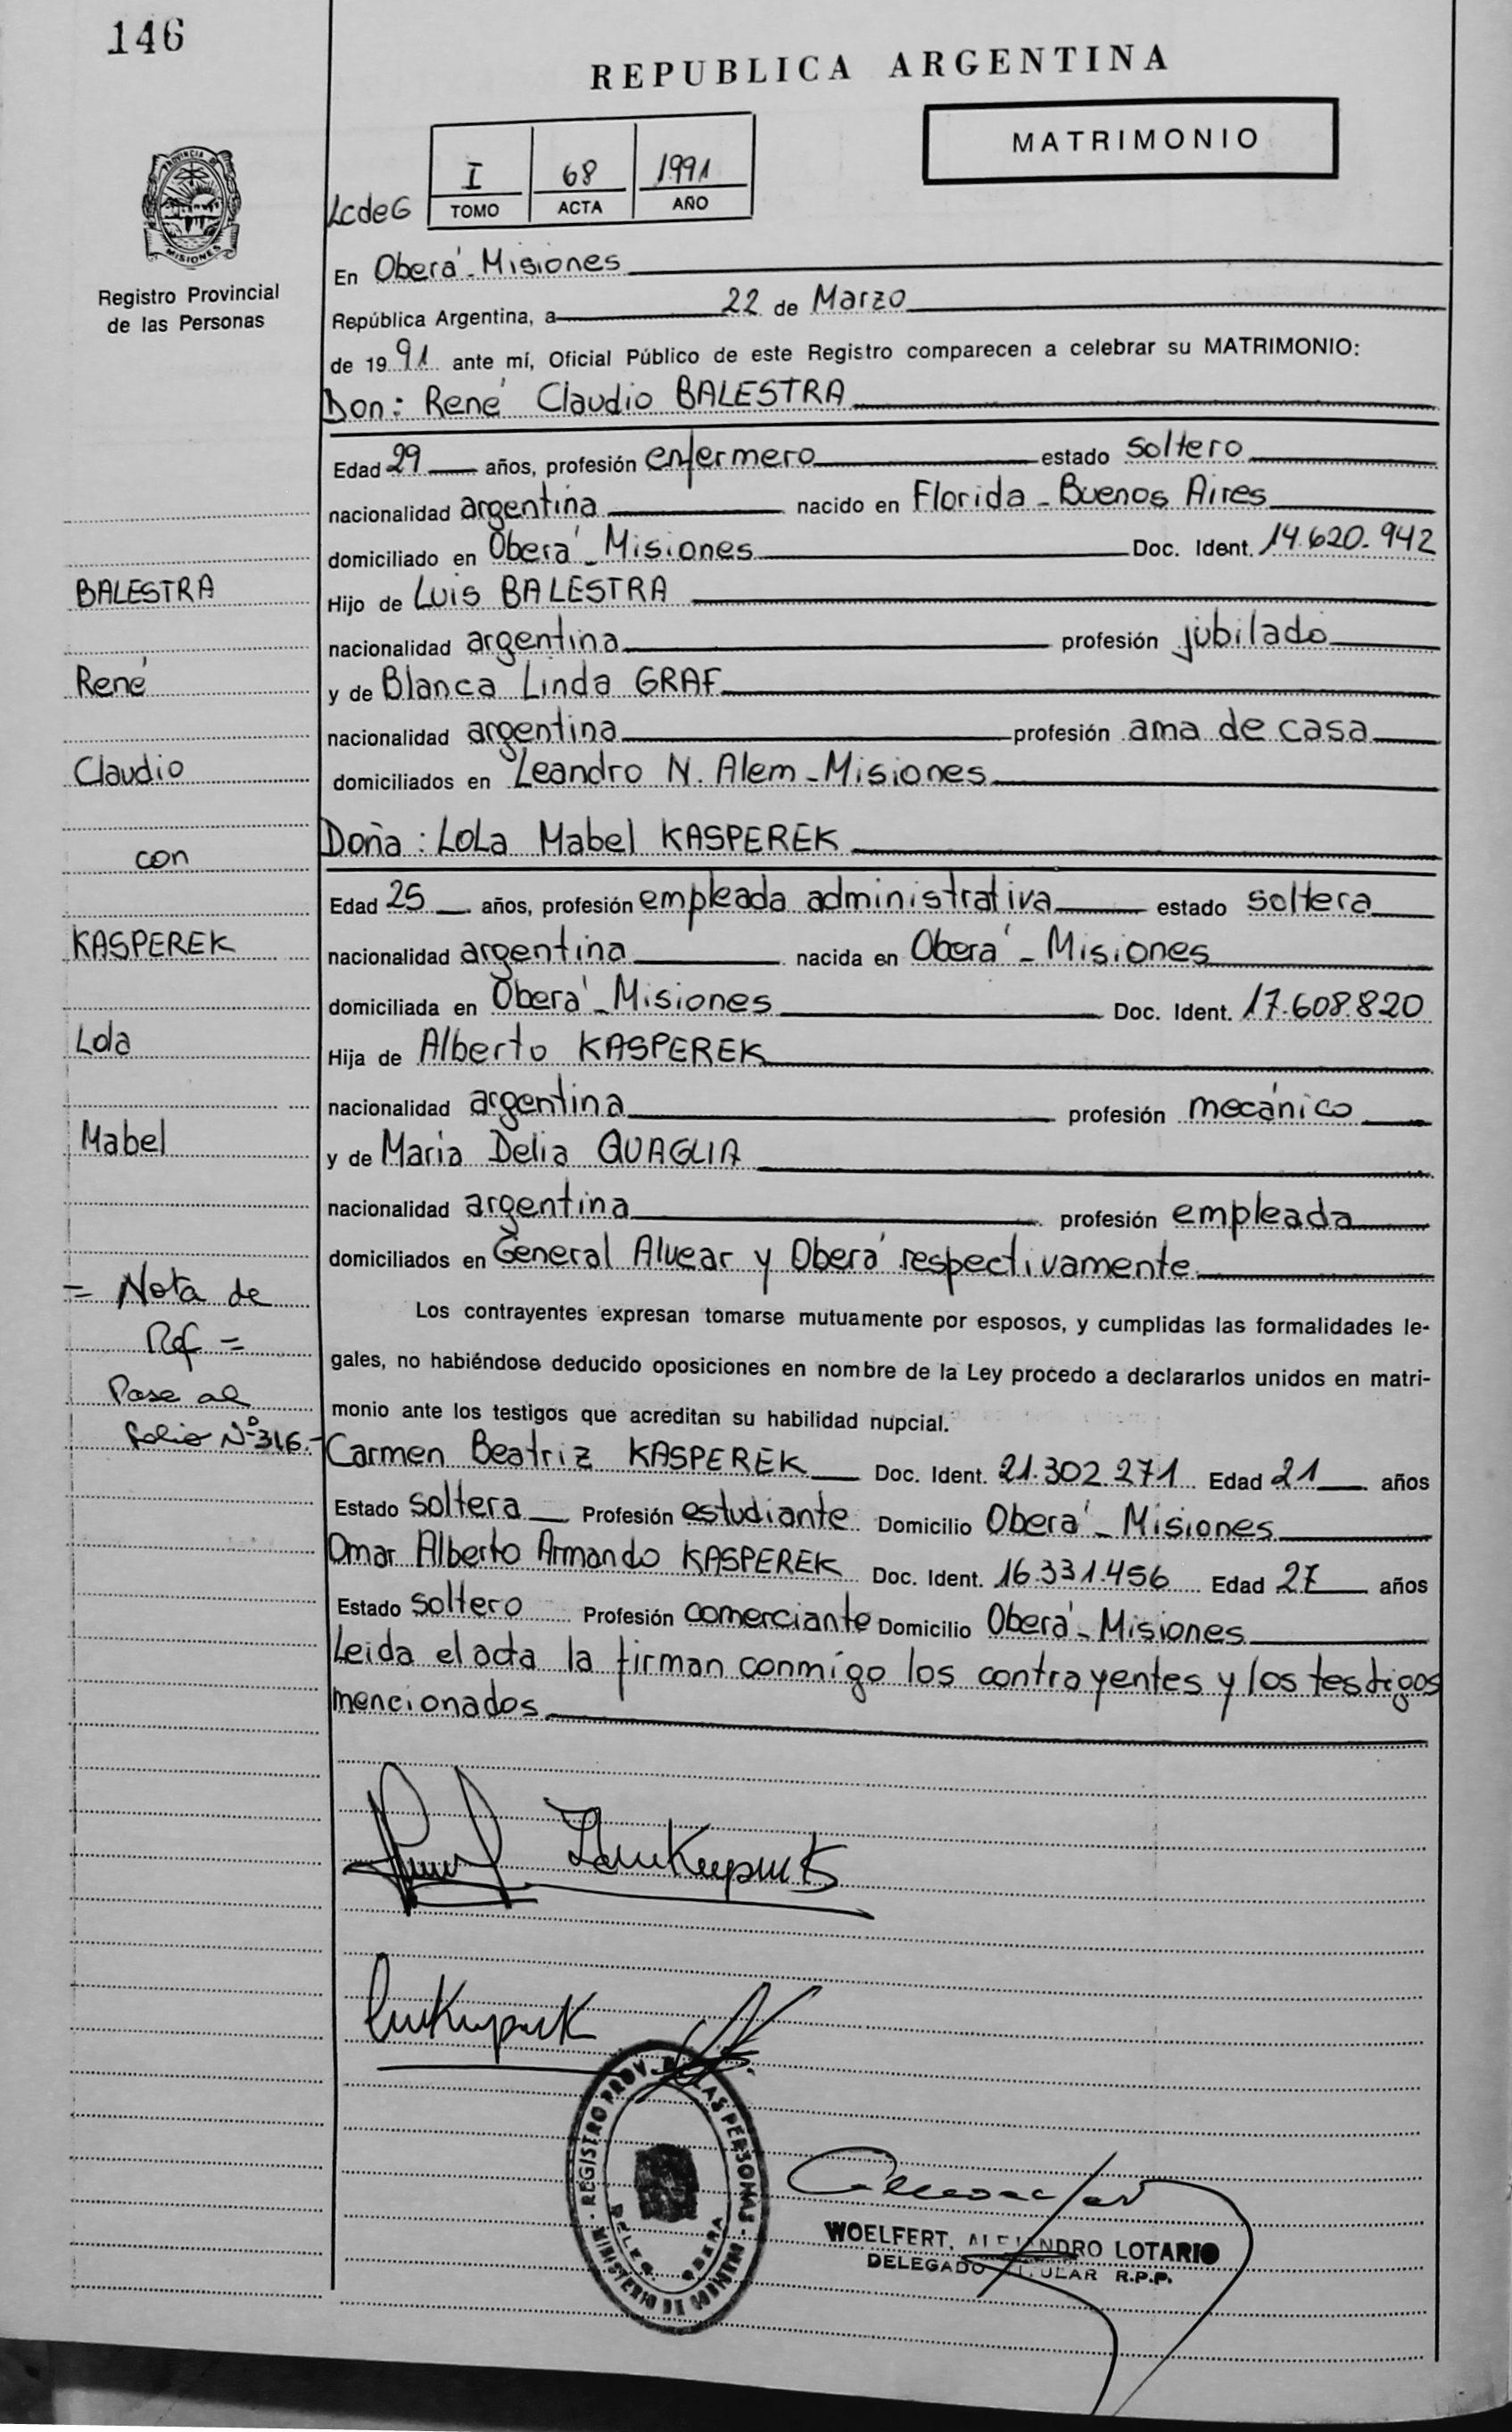 146
REPUBLICA ARGENTINA
MATRIMONIO
I 68 1991
TOMO ACTA AÑO
LcdeG
PROVINCIA DE MISIONES
Registro Provincial
de las Personas
En Oberá - Misiones
República Argentina, a 22 de Marzo
de 1991 ante mí, Oficial Público de este Registro comparecen a celebrar su MATRIMONIO:
Don: René Claudio BALESTRA
Edad 29 años, profesión enfermero estado soltero
nacionalidad argentina nacido en Florida - Buenos Aires
domiciliado en Oberá - Misiones Doc. Ident. 14.620.942
Hijo de Luis BALESTRA
nacionalidad argentina profesión jubilado
y de Blanca Linda GRAF
nacionalidad argentina profesión ama de casa
domiciliados en Leandro N. Alem - Misiones
Doña: Lola Mabel KASPEREK
Edad 25 años, profesión empleada administrativa estado soltera
nacionalidad argentina nacida en Oberá - Misiones
domiciliada en Oberá - Misiones Doc. Ident. 17.608.820
Hija de Alberto KASPEREK
nacionalidad argentina profesión mecánico
y de Maria Delia QUAGLIA
nacionalidad argentina profesión empleada
domiciliados en General Alvear y Oberá respectivamente
Los contrayentes expresan tomarse mutuamente por esposos, y cumplidas las formalidades le-
gales, no habiéndose deducido oposiciones en nombre de la Ley procedo a declararlos unidos en matri-
monio ante los testigos que acreditan su habilidad nupcial.
Carmen Beatriz KASPEREK Doc. Ident. 21.302.271 Edad 21 años
Estado soltera Profesión estudiante Domicilio Oberá - Misiones
Omar Alberto Armando KASPEREK Doc. Ident. 16.331.456 Edad 27 años
Estado soltero Profesión comerciante Domicilio Oberá - Misiones
Leida el acta la firman conmigo los contrayentes y los testigos
mencionados
BALESTRA
René
Claudio
con
KASPEREK
Lola
Mabel
= Nota de
Ref =
Pase al
folio Nº 316.-
REGISTRO PROV. DE LAS PERSONAS
MINISTERIO DE GOBIERNO
DELEG. OBERA
WOELFERT, ALEJANDRO LOTARIO
DELEGADO TITULAR R.P.P.